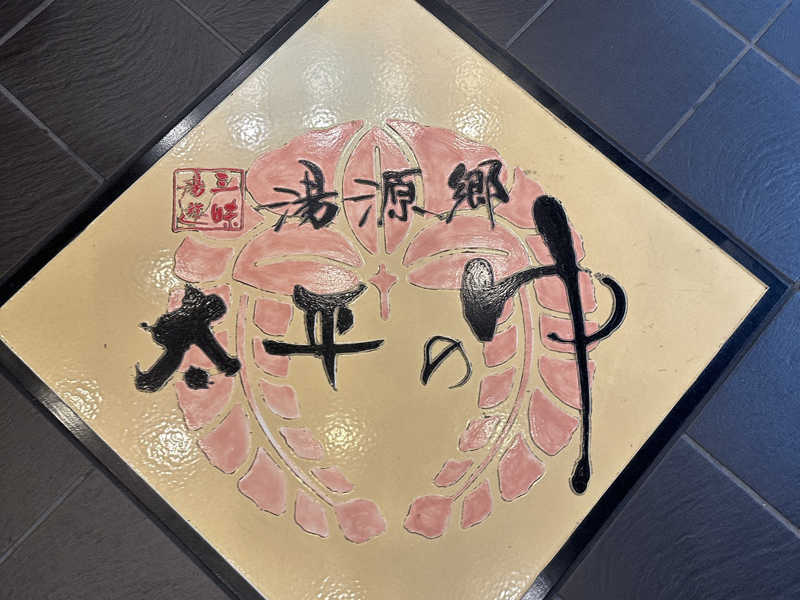 三味
湯遊
湯源郷
太平のゆ